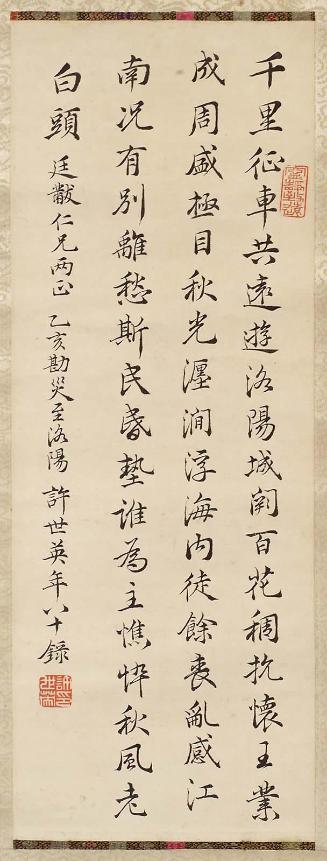 千里征車共遠遊洛陽城闕百花稠抗懷王業
成周盛極目秋光瀍澗浮海內徒餘喪亂感江
南況有別離愁斯民昏墊誰為主憔悴秋風老
白頭 廷黻仁兄兩正 乙亥勘災至洛陽 許世英年八十錄